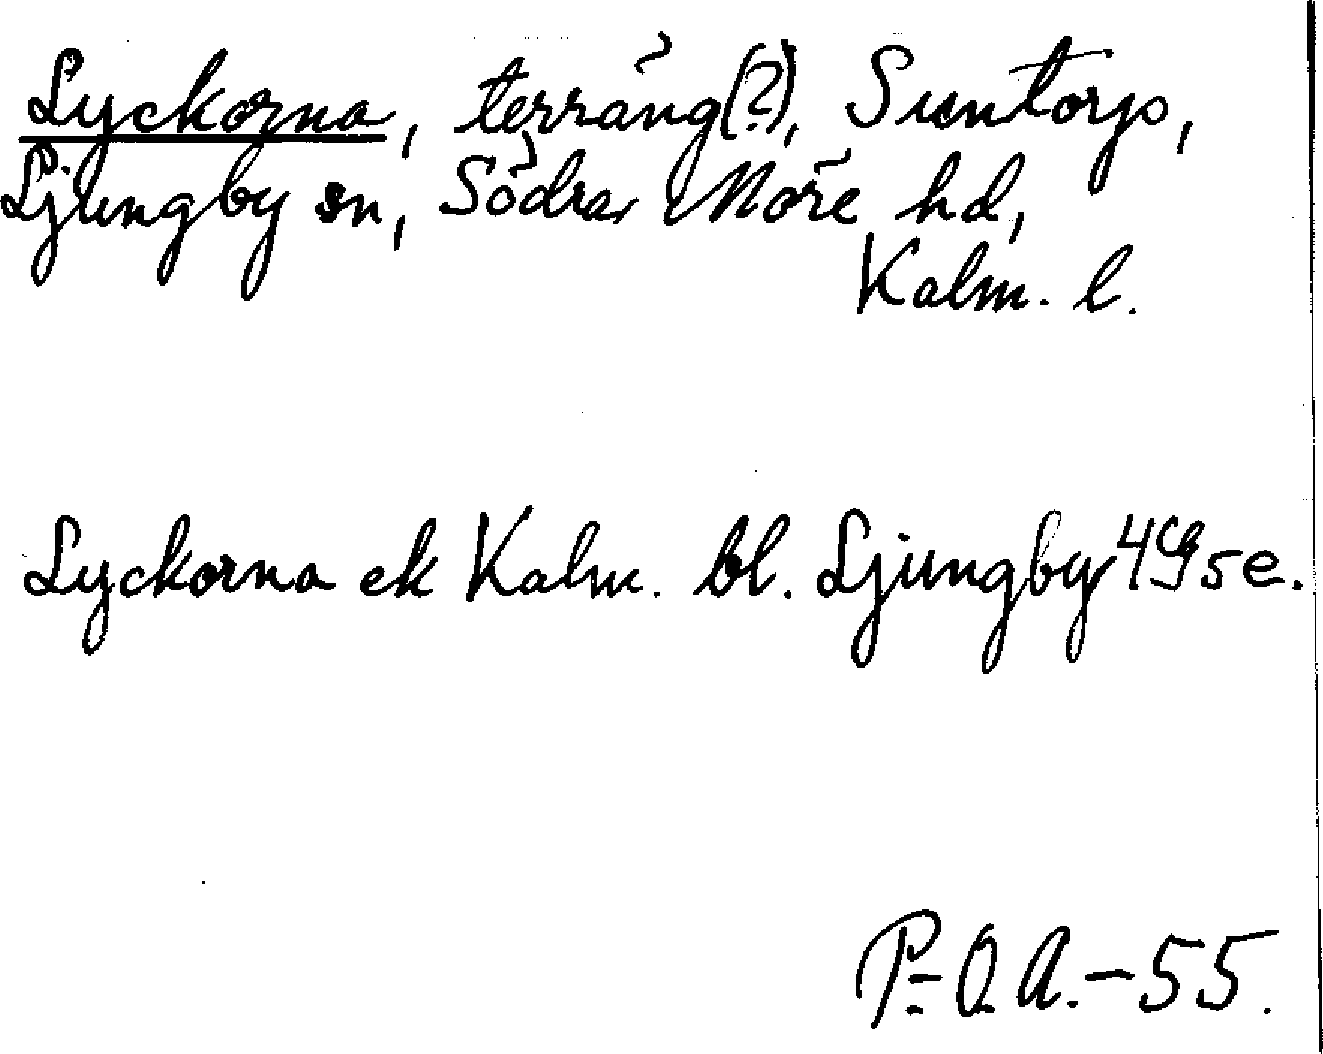 Lyckorna, terräng(?), Suntorp,
Ljungby sn, Södra Möre hd,
Kalm. l.
Lyckorna ek Kalm. bl. Ljungby 4G5e.
P-O.A.-55.